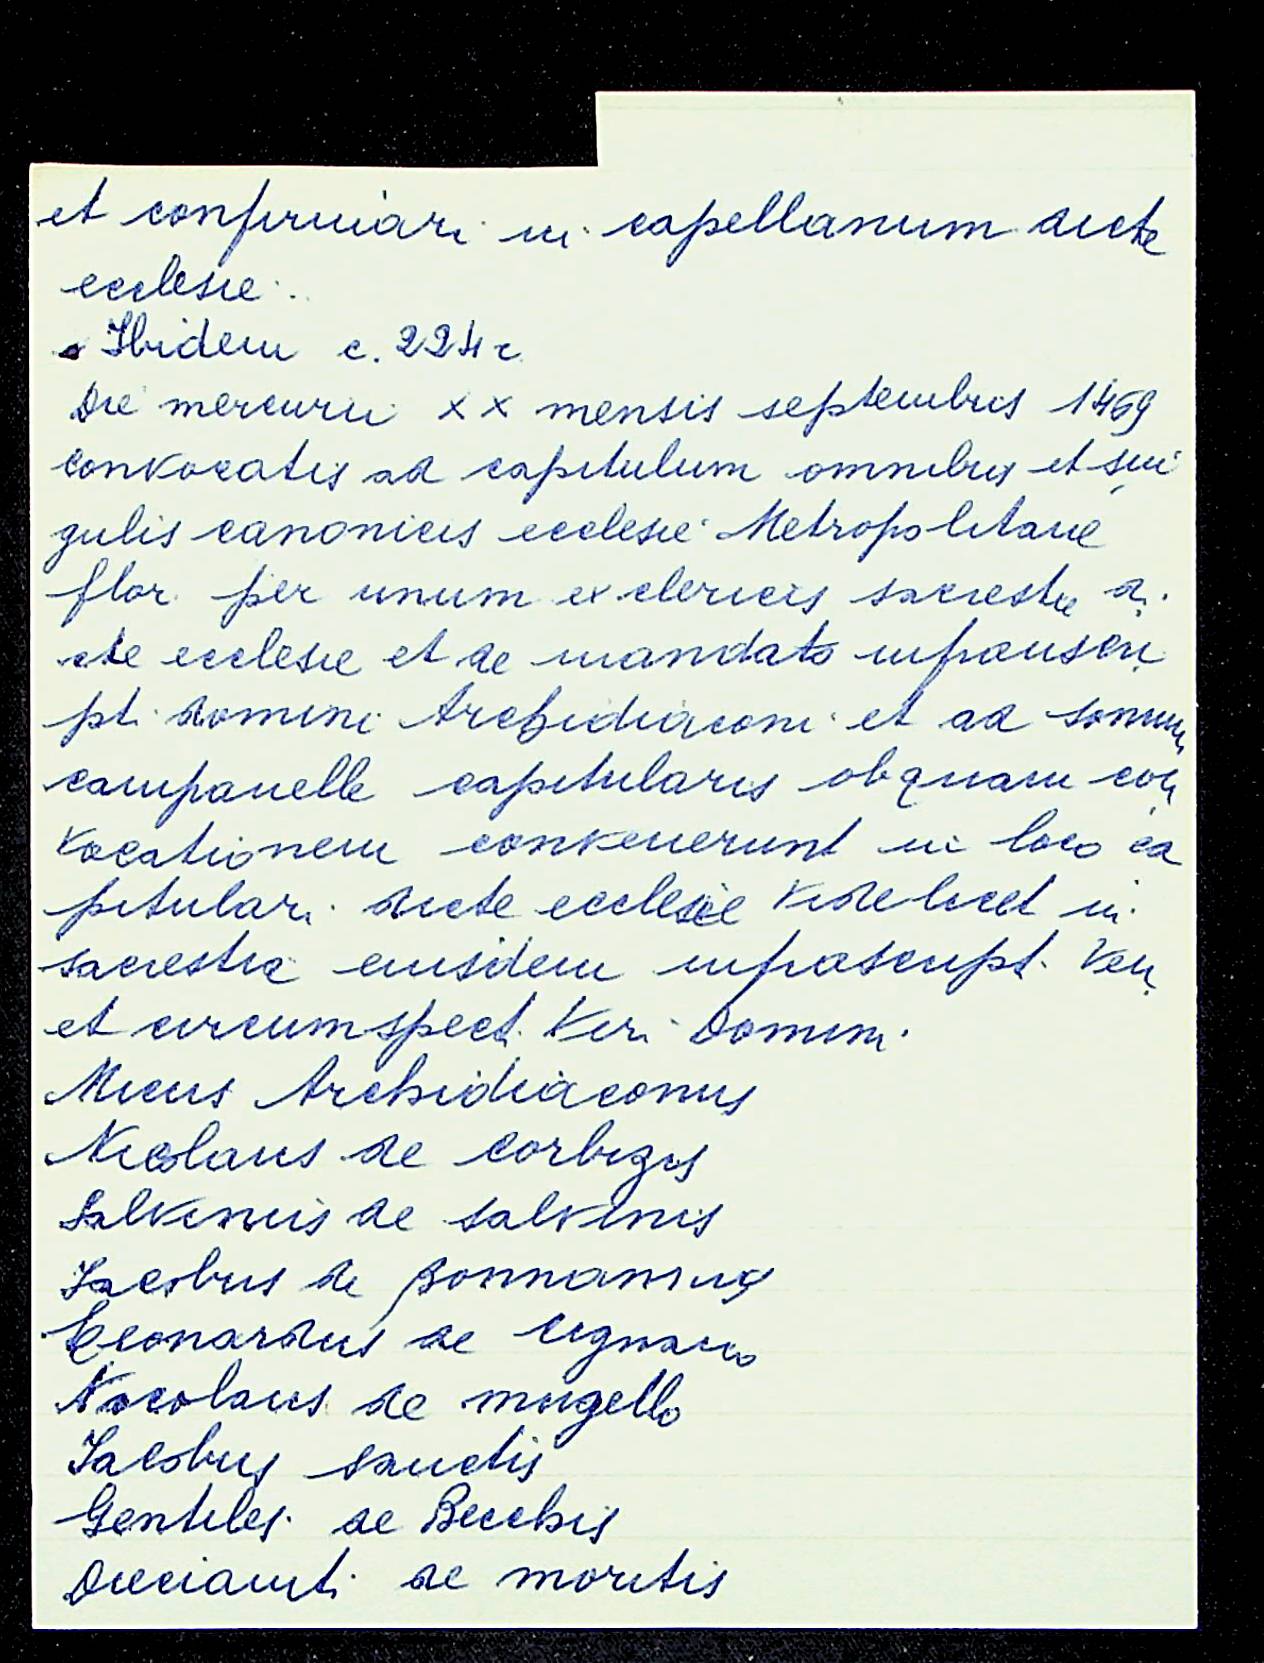 et confirmari in capellanum dicte
ecclesie.
Ibidem c. 224 r
Die mercurii XX mensis septembris 1469
convocatis ad capitulum omnibus et sin
gulis canonicis ecclesie Metropolitane
flor. per unum ex clericis sacrestie di
cte ecclesie et de mandato infrascri
pti domini Archidiaconi et ad sonum
campanelle capitularis ob quam con
vocationem convenerunt in loco ca
pitulari dicte ecclesie videlicet in
sacrestia eiusdem infrascript. Ven
et circumspect. Viri Domini
Micus Archidiaconus
Nicolaus de corbizis
Salvinus de salvinis
Iacobus de
Leonardus de
Nicolaus de mugello
Iacobus sanctis
Gentiles de Becchis
de moritis